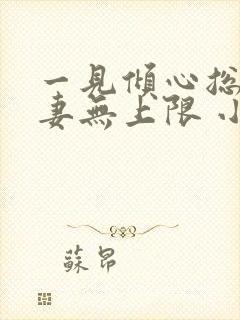 一見傾心総
妻無上限 小
蘇昂